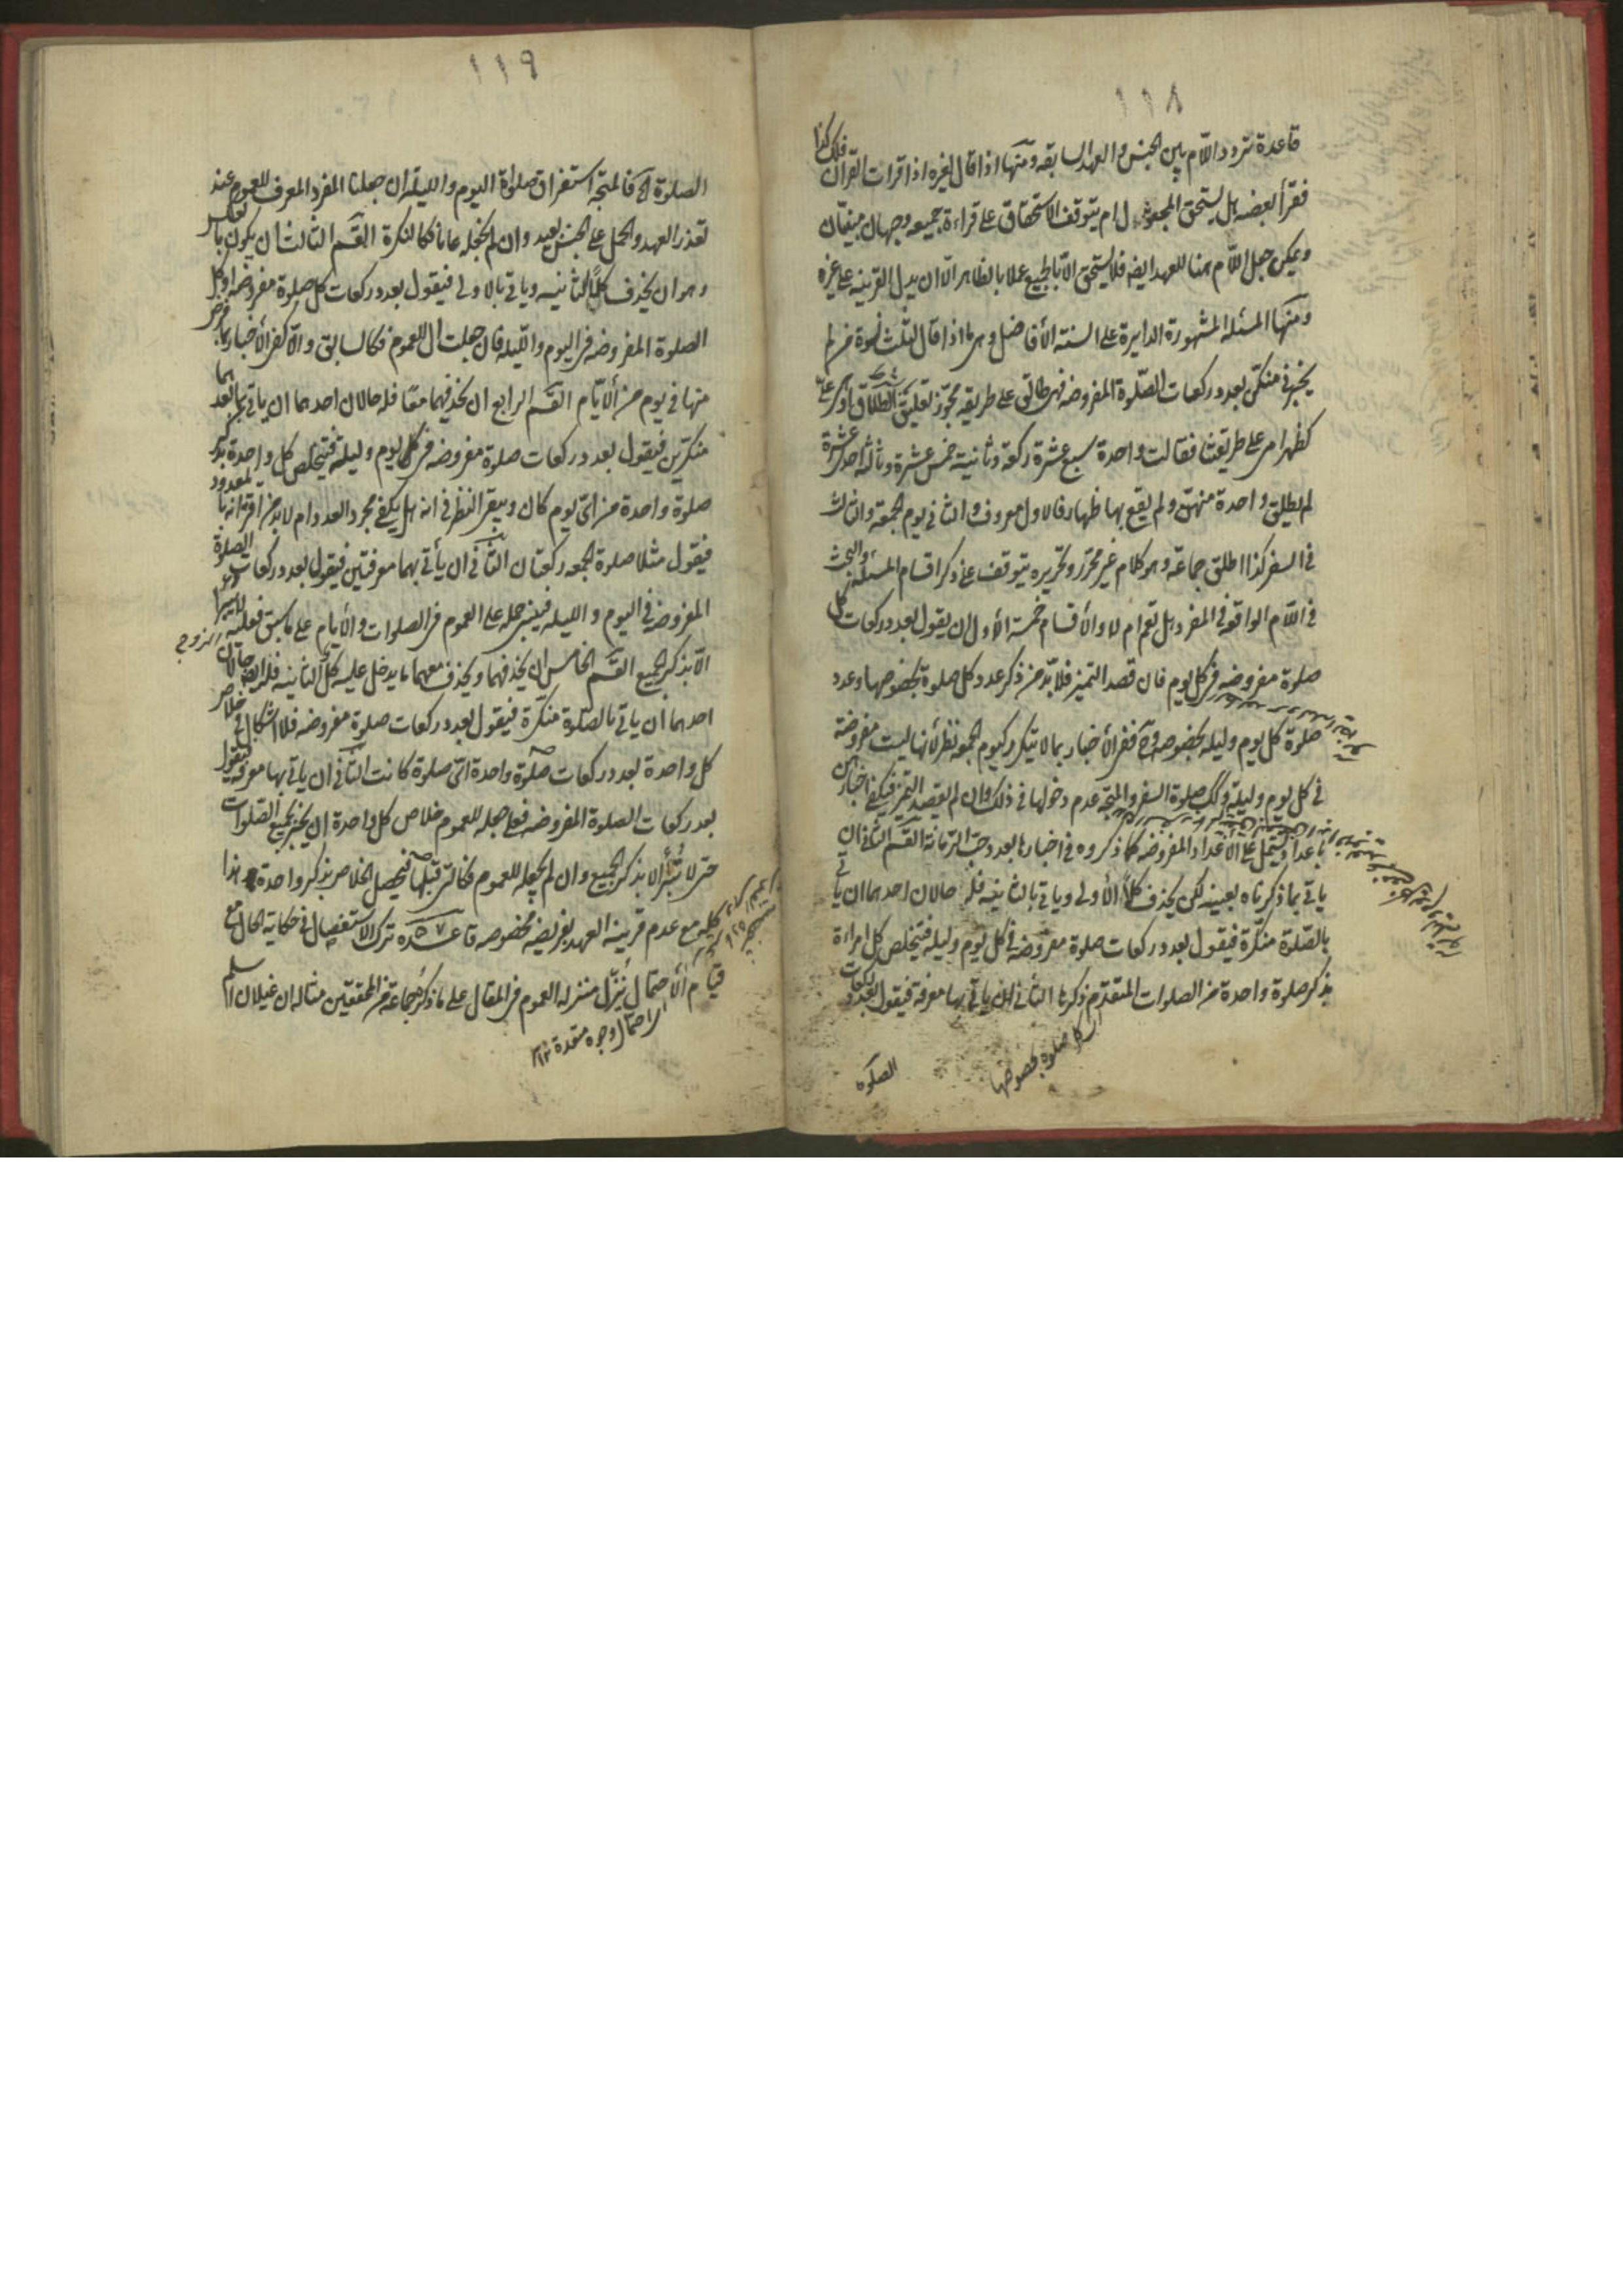 ١١٨
قاعدة تردد اللام بين الجنس والعهد السابقه ومنها اذا قال لغيره اذا قرات القران فلك كذا
فقرأ بعضه هل يستحق المجعول ام يتوقف الاستحقاق على قراءة جميعه وجهان مبنيان
ويمكن جعل اللام هنا للعهد ايضه فلا يستحق الا بالجميع عملا بالظاهر الا ان يدل القرينه على غيره
ومنها المسئله المشهورة الدايرة على السنة الأفاضل وهى ما اذا قال لثلث نسوة من لم
يخبرنى منكن بعدد ركعات الصلوة المفروضه فهى طالق على طريقه مجوز تعليق الطلاق او هى على
كظهر امى على طريقتنا فقالت واحدة سبع عشرة ركعة وثانية خمس عشرة وثالثه احدى عشرة
لم يطلق واحدة منهن ولم يقع بها ظهار فالاول معروف والثانى يوم الجمعة والثالث
فى السفر كذا اطلق جماعة وهو كلام غير محرر وتحريره يتوقف على ذكر اقسام المسئلة والبحث
فى اللام الواقعه فى المفرد هل تعم ام لا والأقسام خمسة الأول ان يقول بعدد ركعات كل
صلوة مفروضه فى كل يوم فان قصد التميز فلا بد من ذكر عدد كل صلوة بخصوصها وعدد
صلوة كل يوم وليله بخصوصه وح ففى الأخبار بما لا يتكرر كيوم الجمعه نظر لأنها ليست مفروضة
فى كل يوم وليلة وكك صلوة السفر والمتجه عدم دخولها فى ذلك وان لم يقصد التميز فيكفى اخبارهن
باعداد يشتمل على الأعداد المفروضه كما ذكروه فى اخبارها بعدد حب الرمانة القسم الثانى ان
ياتى بما ذكرناه بعينه لكن يحذف كلا الأولى وياتى بالثانيه فله حالان احدهما ان ياتى
بالصلوة منكرة فيقول بعدد ركعات صلوة مفروضه فى كل يوم وليله فيتخلص كل امراءة
بذكر صلوة واحدة من الصلوات المتقدم ذكرها الثانى ان ياتى بها معرفة فيقول بعدد ركعات
كل صلوة بخصوصها
الصلوة
١١٩
الصلوة الخ فالمتجه استغراق صلواة اليوم والليلة ان جعلنا المفرد المعرف للعموم عند
تعذر العهد والحمل على الجنس بعيد وان لم نجعله عاما فكالنكرة القسم الثالث ان يكون بالعكس
وهو ان يحذف كلا الثانيه وياتى بالاولى فيقول بعدد ركعات كل صلوة مفروضه او كل
الصلوة المفروضه فى اليوم والليله فان جعلت ال للعموم فكالسابق والا كفى الأخبار بما فرض
منها فى يوم من الأيام القسم الرابع ان يحذفهما معا فله حالان احدهما ان ياتى بهما بعد
منكرين فيقول بعدد ركعات صلوة مفروضه فى كل يوم وليلة فيتخلص كل واحدة بذكر
صلوة واحدة من اى يوم كان ويبقى النظر فى انه هل يكفى مجرد العدد ام لابد من اقترانه بالمعدود
فيقول مثلا صلوة الجمعه ركعتان الثانى ان يأتى بهما معرفتين فيقول بعدد ركعات الصلوة
المفروضه فى اليوم والليله فينبنى حمله على العموم فى الصلوات والأيام على ما سبق فعليه لا يبرا
الا بذكر الجميع القسم الخامس ان يحذفهما ويحذف معهما ما يدخل عليه كل الثانيه فله ايضا حالان
احدهما ان ياتى بالصلوة منكرة فيقول بعدد ركعات صلوة مفروضه فلا اشكال فى خلاص
كل واحدة بعدد ركعات صلوة واحدة اى صلوة كانت الثانى ان ياتى بها معرفة فيقول
بعدد ركعات الصلوة المفروضه فعلى جعله للعموم خلاص كل واحدة ان يخبر بجميع الصلوات
حتى لا تبرأ الا بذكر الجميع وان لم نجعله للعموم فكالتى قبلها فيحصل الخلاص بذكر واحدة هذا
كله مع عدم قرينة العهد بفريضه مخصوصه قاعدة ٥٧ ترك الاستفصال فى حكاية الحال مع
قيام الأحتمال ينزل منزله العموم فى المقال على ما ذكره جماعة من المحققين مثاله ان غيلان اسلم
الاحتمال وجوه متعددة